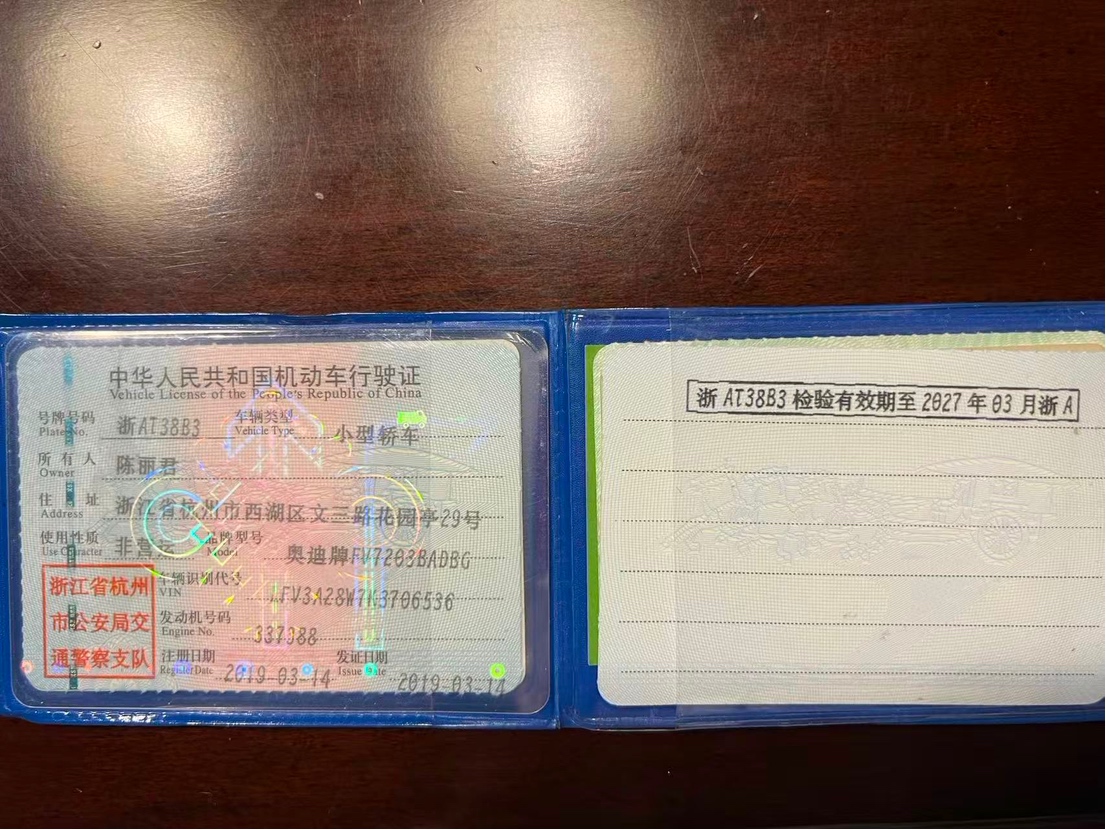 中华人民共和国机动车行驶证
Vehicle License of the People's Republic of China
号牌号码 浙AT38B3 车辆类型 小型轿车
Plate No. Vehicle Type
所有人 陈丽君
Owner
住址 浙江省杭州市西湖区文三路花园亭29号
Address
使用性质 非营运 品牌型号 奥迪牌FV7203BADBG
Use Character Model
浙江省杭州
市公安局交
通警察支队
车辆识别代号 LFV3A28W7K3706536
VIN
发动机号码 337388
Engine No.
注册日期 2019-03-14 发证日期 2019-03-14
Register Date Issue Date
浙AT38B3检验有效期至2027年03月浙A